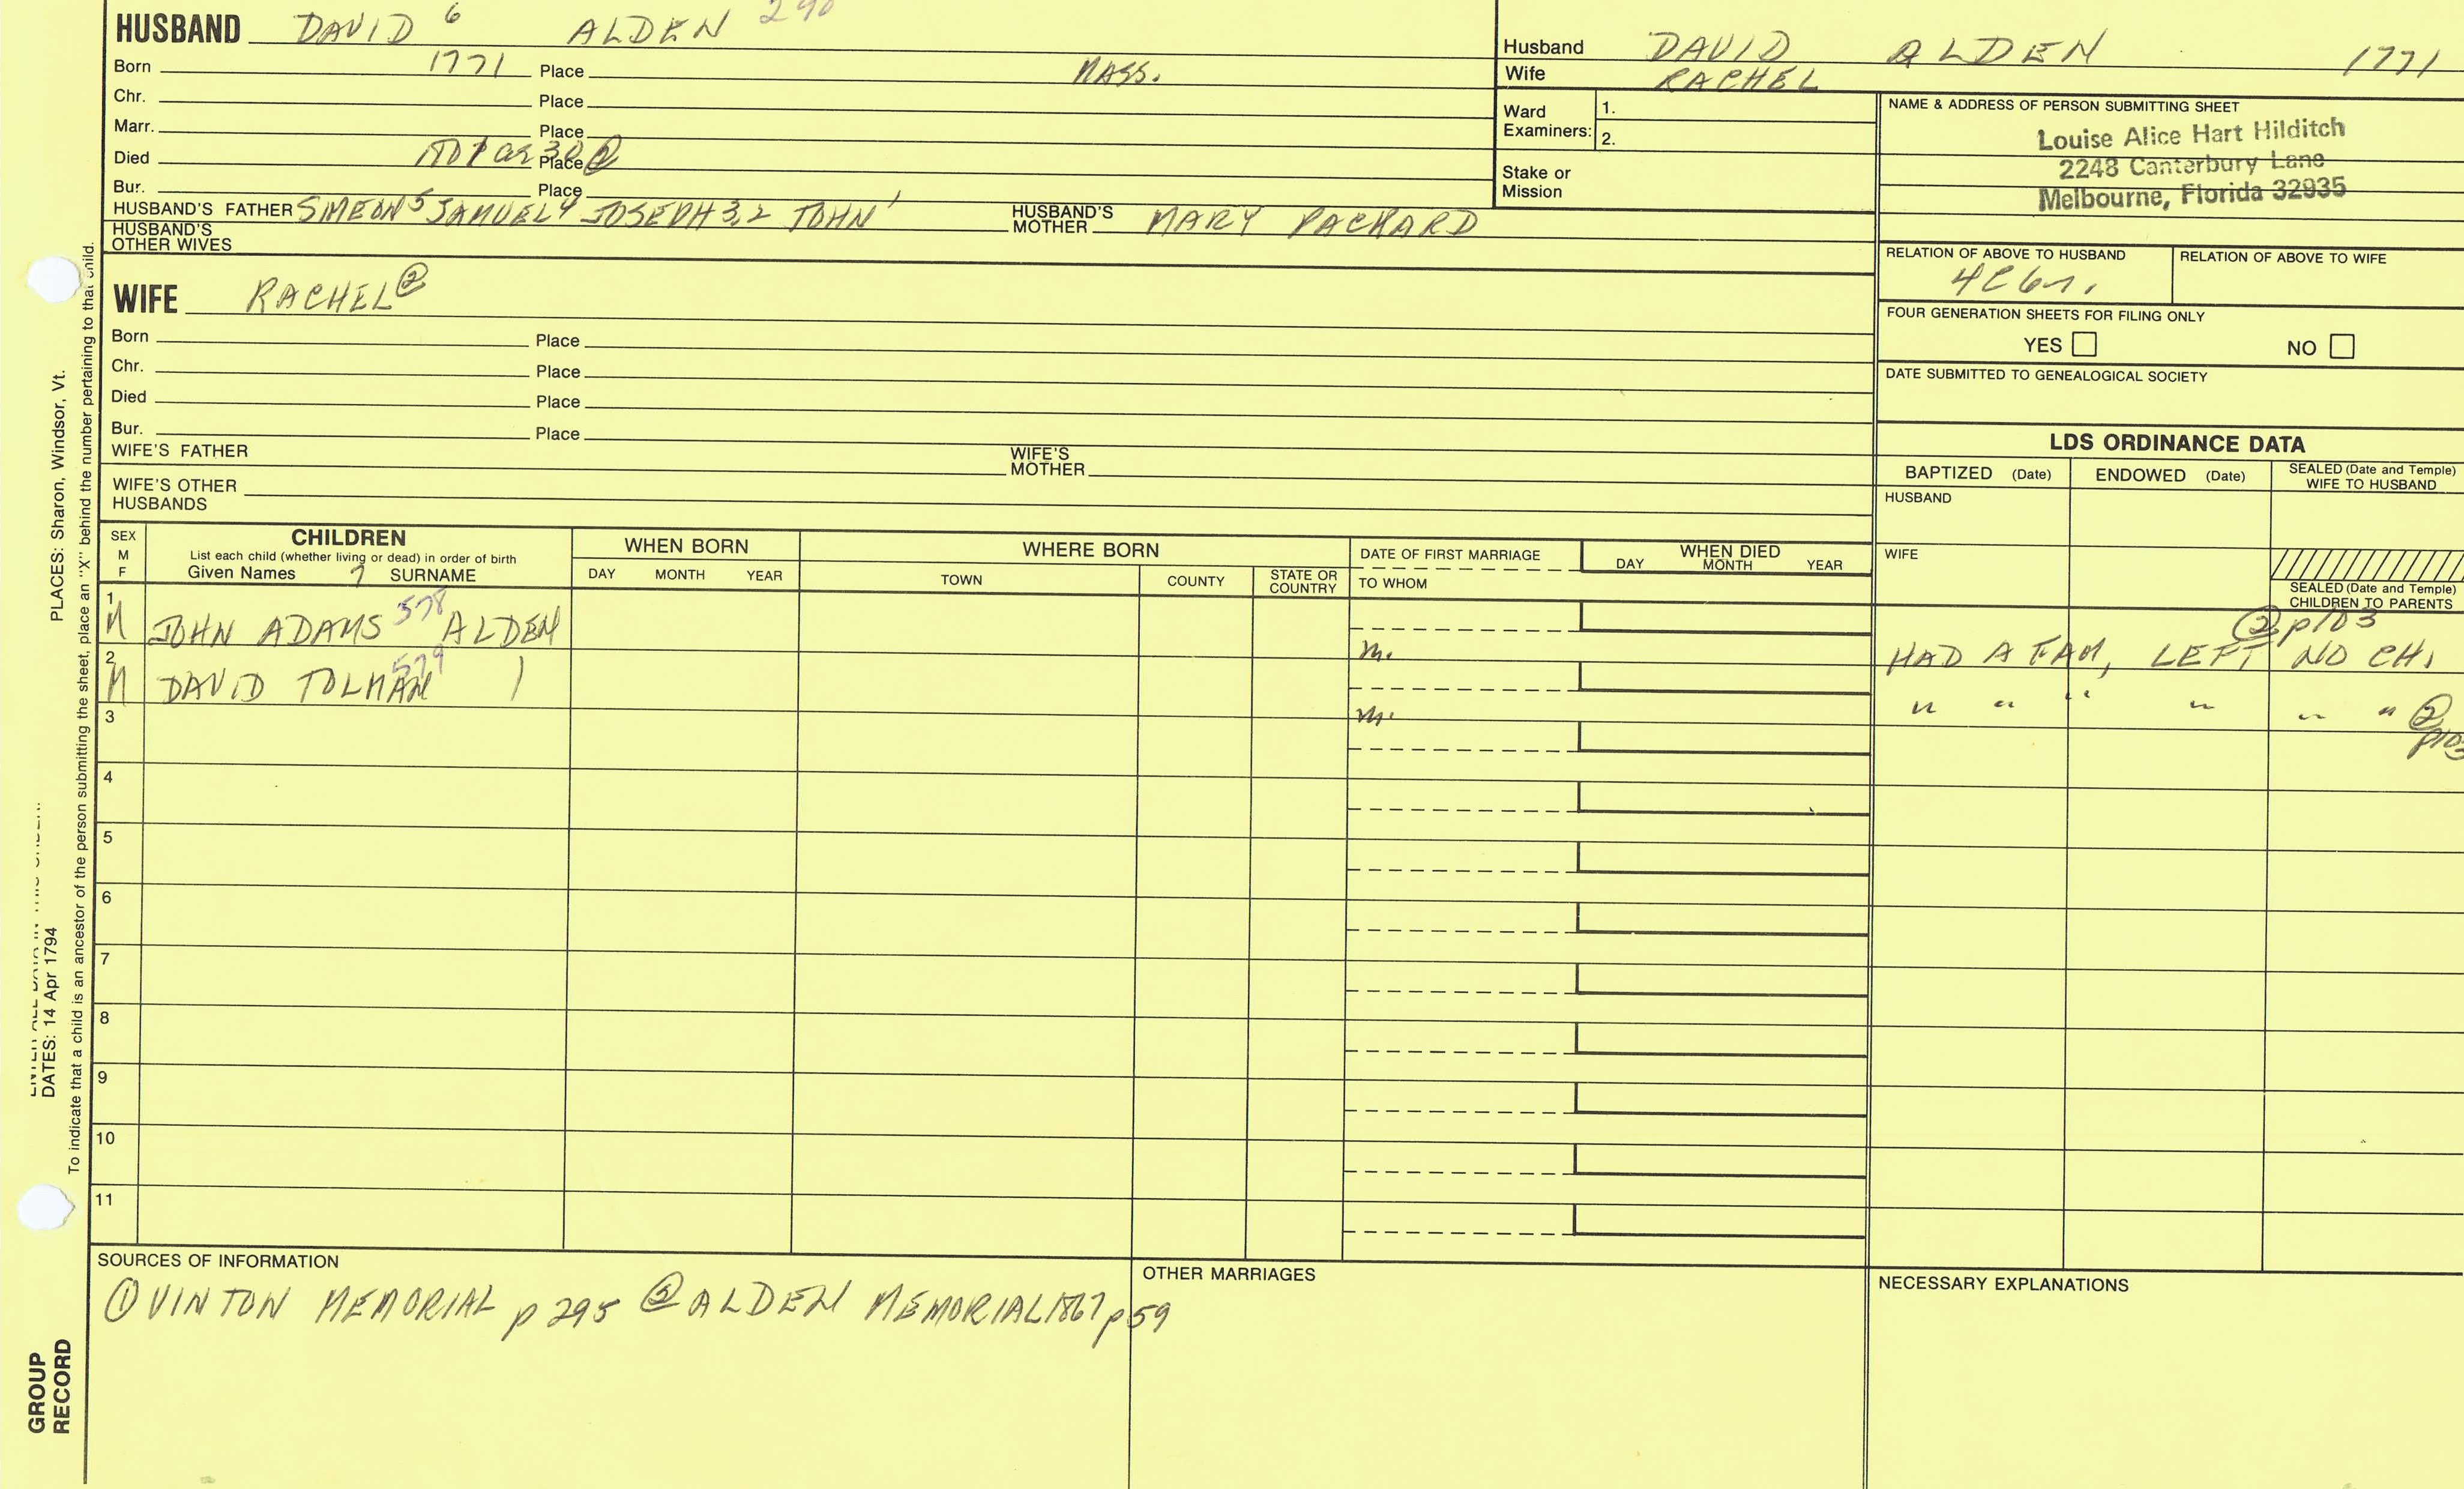 HUSBAND DAVID 6 ALDEN 290
Born 1771 Place MASS.
Chr. Place
Marr. Place
Died Place
Bur. Place
HUSBAND'S FATHER SIMEON5 SAMUEL4 JOSEPH 3,2 JOHN1 HUSBAND'S MOTHER MARY PACKARD
HUSBAND'S OTHER WIVES
Husband DAVID ALDEN 1771
Wife RACHEL
Ward Examiners: 1.
2.
Stake or Mission
NAME & ADDRESS OF PERSON SUBMITTING SHEET
Louise Alice Hart Hilditch
2248 Canterbury Lane
Melbourne, Florida 32935
RELATION OF ABOVE TO HUSBAND RELATION OF ABOVE TO WIFE
4C6r.
FOUR GENERATION SHEETS FOR FILING ONLY
YES NO
DATE SUBMITTED TO GENEALOGICAL SOCIETY
WIFE RACHEL ②
Born Place
Chr. Place
Died Place
Bur. Place
WIFE'S FATHER WIFE'S MOTHER
WIFE'S OTHER HUSBANDS
LDS ORDINANCE DATA
BAPTIZED (Date) ENDOWED (Date) SEALED (Date and Temple) WIFE TO HUSBAND
HUSBAND
WIFE
SEALED (Date and Temple) CHILDREN TO PARENTS
SEX M F
CHILDREN
List each child (whether living or dead) in order of birth
Given Names 7 SURNAME
WHEN BORN
DAY MONTH YEAR
WHERE BORN
TOWN COUNTY STATE OR COUNTRY
DATE OF FIRST MARRIAGE
TO WHOM
WHEN DIED
DAY MONTH YEAR
1 M JOHN ADAMS 578 ALDEN
m. HAD A FAM, LEFT NO CH. ② p103
2 M DAVID TOLMAN 579 |
m. " " " " " " ② p103
3
4
5
6
7
8
9
10
11
SOURCES OF INFORMATION
① VINTON MEMORIAL p 295 ② ALDEN MEMORIAL 1867 p 59
OTHER MARRIAGES
NECESSARY EXPLANATIONS
DATES: 14 Apr 1794 PLACES: Sharon, Windsor, Vt.
To indicate that a child is an ancestor of the person submitting the sheet, place an "X" behind the number pertaining to that child.
GROUP
RECORD